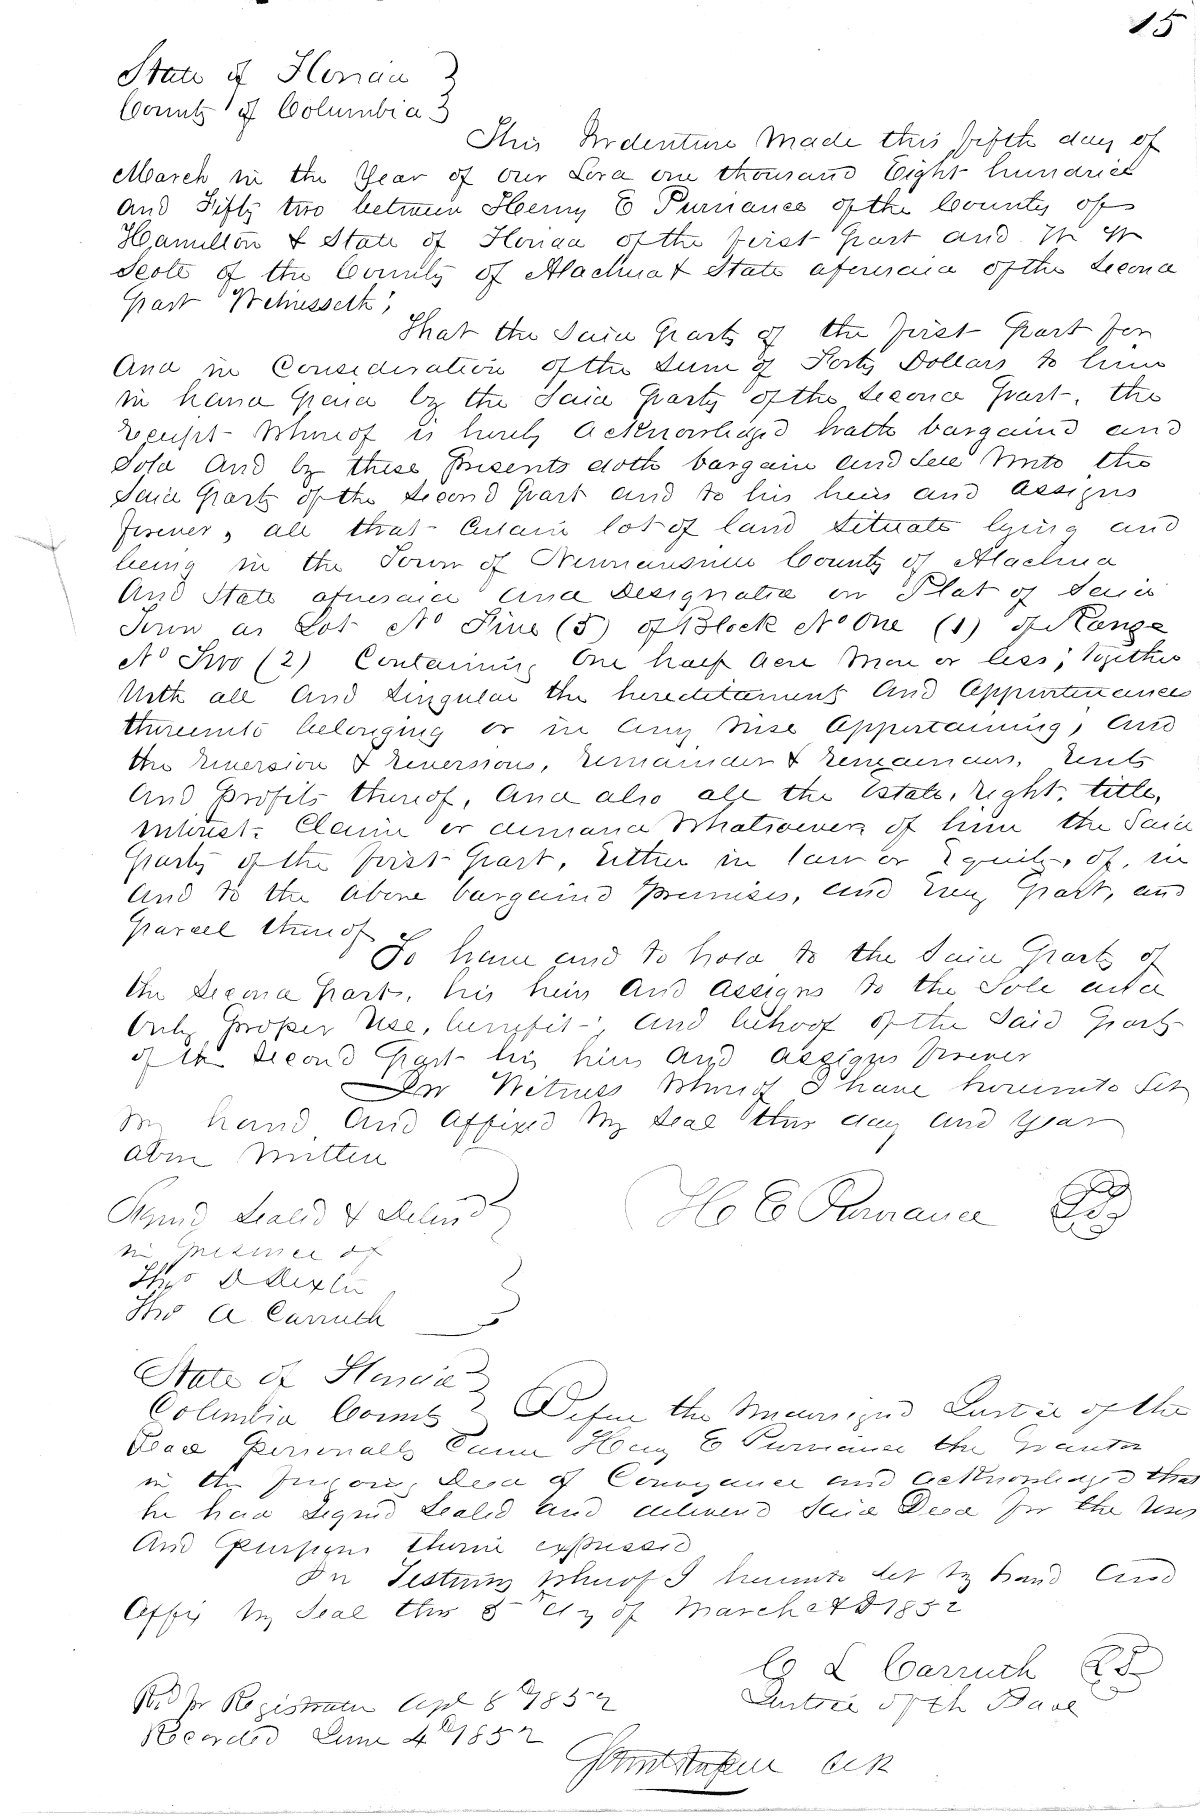 15
State of Florida }
County of Columbia }
This Indenture made this fifth day of
March in the Year of our Lord one thousand Eight hundred
and Fifty two between Henry E Purviance of the County of
Hamilton & State of Florida of the first part and W W
Scott of the County of Alachua & State aforesaid of the second
part Witnesseth;
That the said party of the first part for
and in Consideration of the sum of Forty Dollars to him
in hand paid by the said party of the second part, the
receipt whereof is hereby acknowledged hath bargaind and
sold and by these presents doth bargain and sell unto the
said party of the second part and to his heirs and assigns
forever, all that certain lot of land situate lying and
being in the Town of Newnansville County of Alachua
and State aforesaid and Designated on Plat of said
Town as Lot No Five (5) of Block No One (1) of Range
No Two (2) Containing one half acre more or less; together
with all and singular the hereditaments and appurtenances
thereunto belonging or in any wise appertaining; and
the reversion & reversions, remainder & remainders, rents
and profits thereof, and also all the Estate, right, title,
interest, Claim or demand whatsoever of him the said
party of the first part, Either in law or Equity, of, in
and to the above bargaind premises, and Every part, and
parcel thereof
To have and to hold to the said party of
the second part, his heirs and assigns to the sole and
only proper use, benefit, and behoof of the said party
of the second part his heirs and assigns forever
In Witness whereof I have hereunto set
my hand and affixed my seal this day and year
above written
Signd Sealed & Delivd }
in presence of
H E Purviance LS
Thos D Dexter
Thos A Carruth }
State of Florida }
Columbia County } Before the undersignd Justice of the
Peace personally came Henry E Purviance the Grantor
in the foregoing Deed of Conveyance and acknowledged that
he had signd sealed and deliverd said Deed for the uses
and purposes therein expressed
In Testimony whereof I hereunto set my hand and
affix my seal this 5th day of March AD 1852
C L Carruth LS
Justice of th Peace
Recd for Registration Apl 8th 1852
Recorded June 4th 1852
Clk